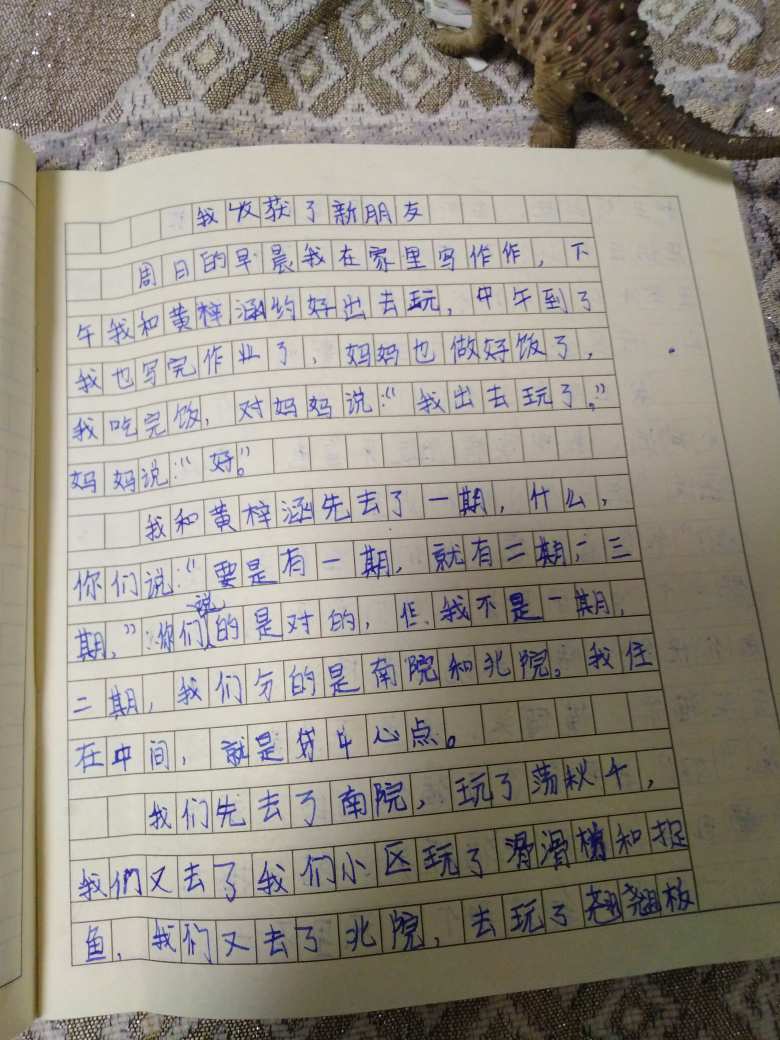 我收获了新朋友
周日的早晨我在家里写作作，下
午我和黄梓涵约好出去玩，中午到了
我也写完作业了，妈妈也做好饭了，
我吃完饭，对妈妈说：“我出去玩了。”
妈妈说：“好。”
我和黄梓涵先去了一期，什么，
你们说：“要是有一期，就有二期，三
期，”你们说的是对的，但我不是一期，
二期，我们分的是南院和北院。我住
在中间，就是中心点。
我们先去了南院，玩了荡秋千，
我们又去了我们小区玩了滑滑梯和捉
鱼，我们又去了北院，去玩了翘翘板